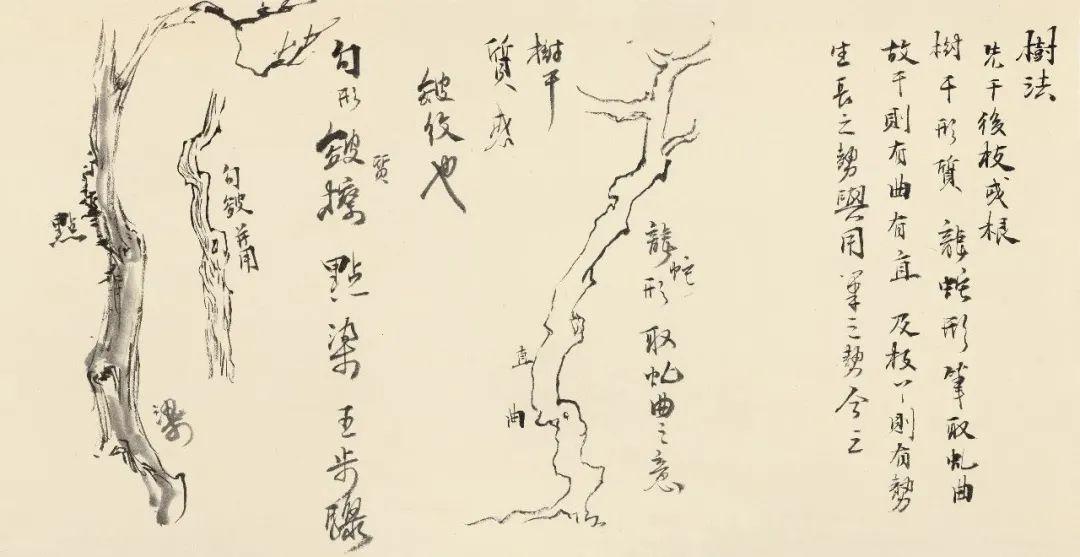 樹法
先干後枝或根
樹干形質 龍蛇形筆取虬曲
故干則有曲有直 及枝丫則有勢
生長之勢與用筆之勢合之
龍蛇形 取虬曲之意
直
曲
樹干
質感
皴紋也
句形皴擦 點染 五步驟
質
句皴并用
點
染